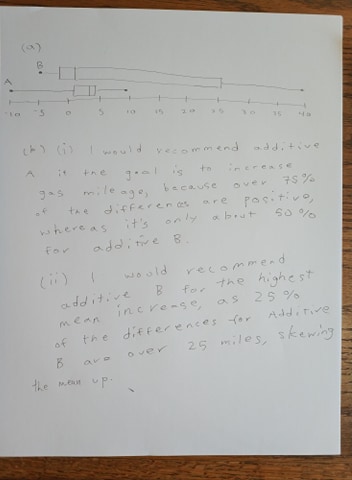 (a)
B
A
-10 -5 0 5 10 15 20 25 30 35 40
(b) (i) I would recommend additive
A if the goal is to increase
gas mileage, because over 75%
of the differences are positive,
whereas it's only about 50%
for additive B.
(ii) I would recommend
additive B for the highest
mean increase, as 25%
of the differences for Additive
B are over 25 miles, skewing
the mean up.